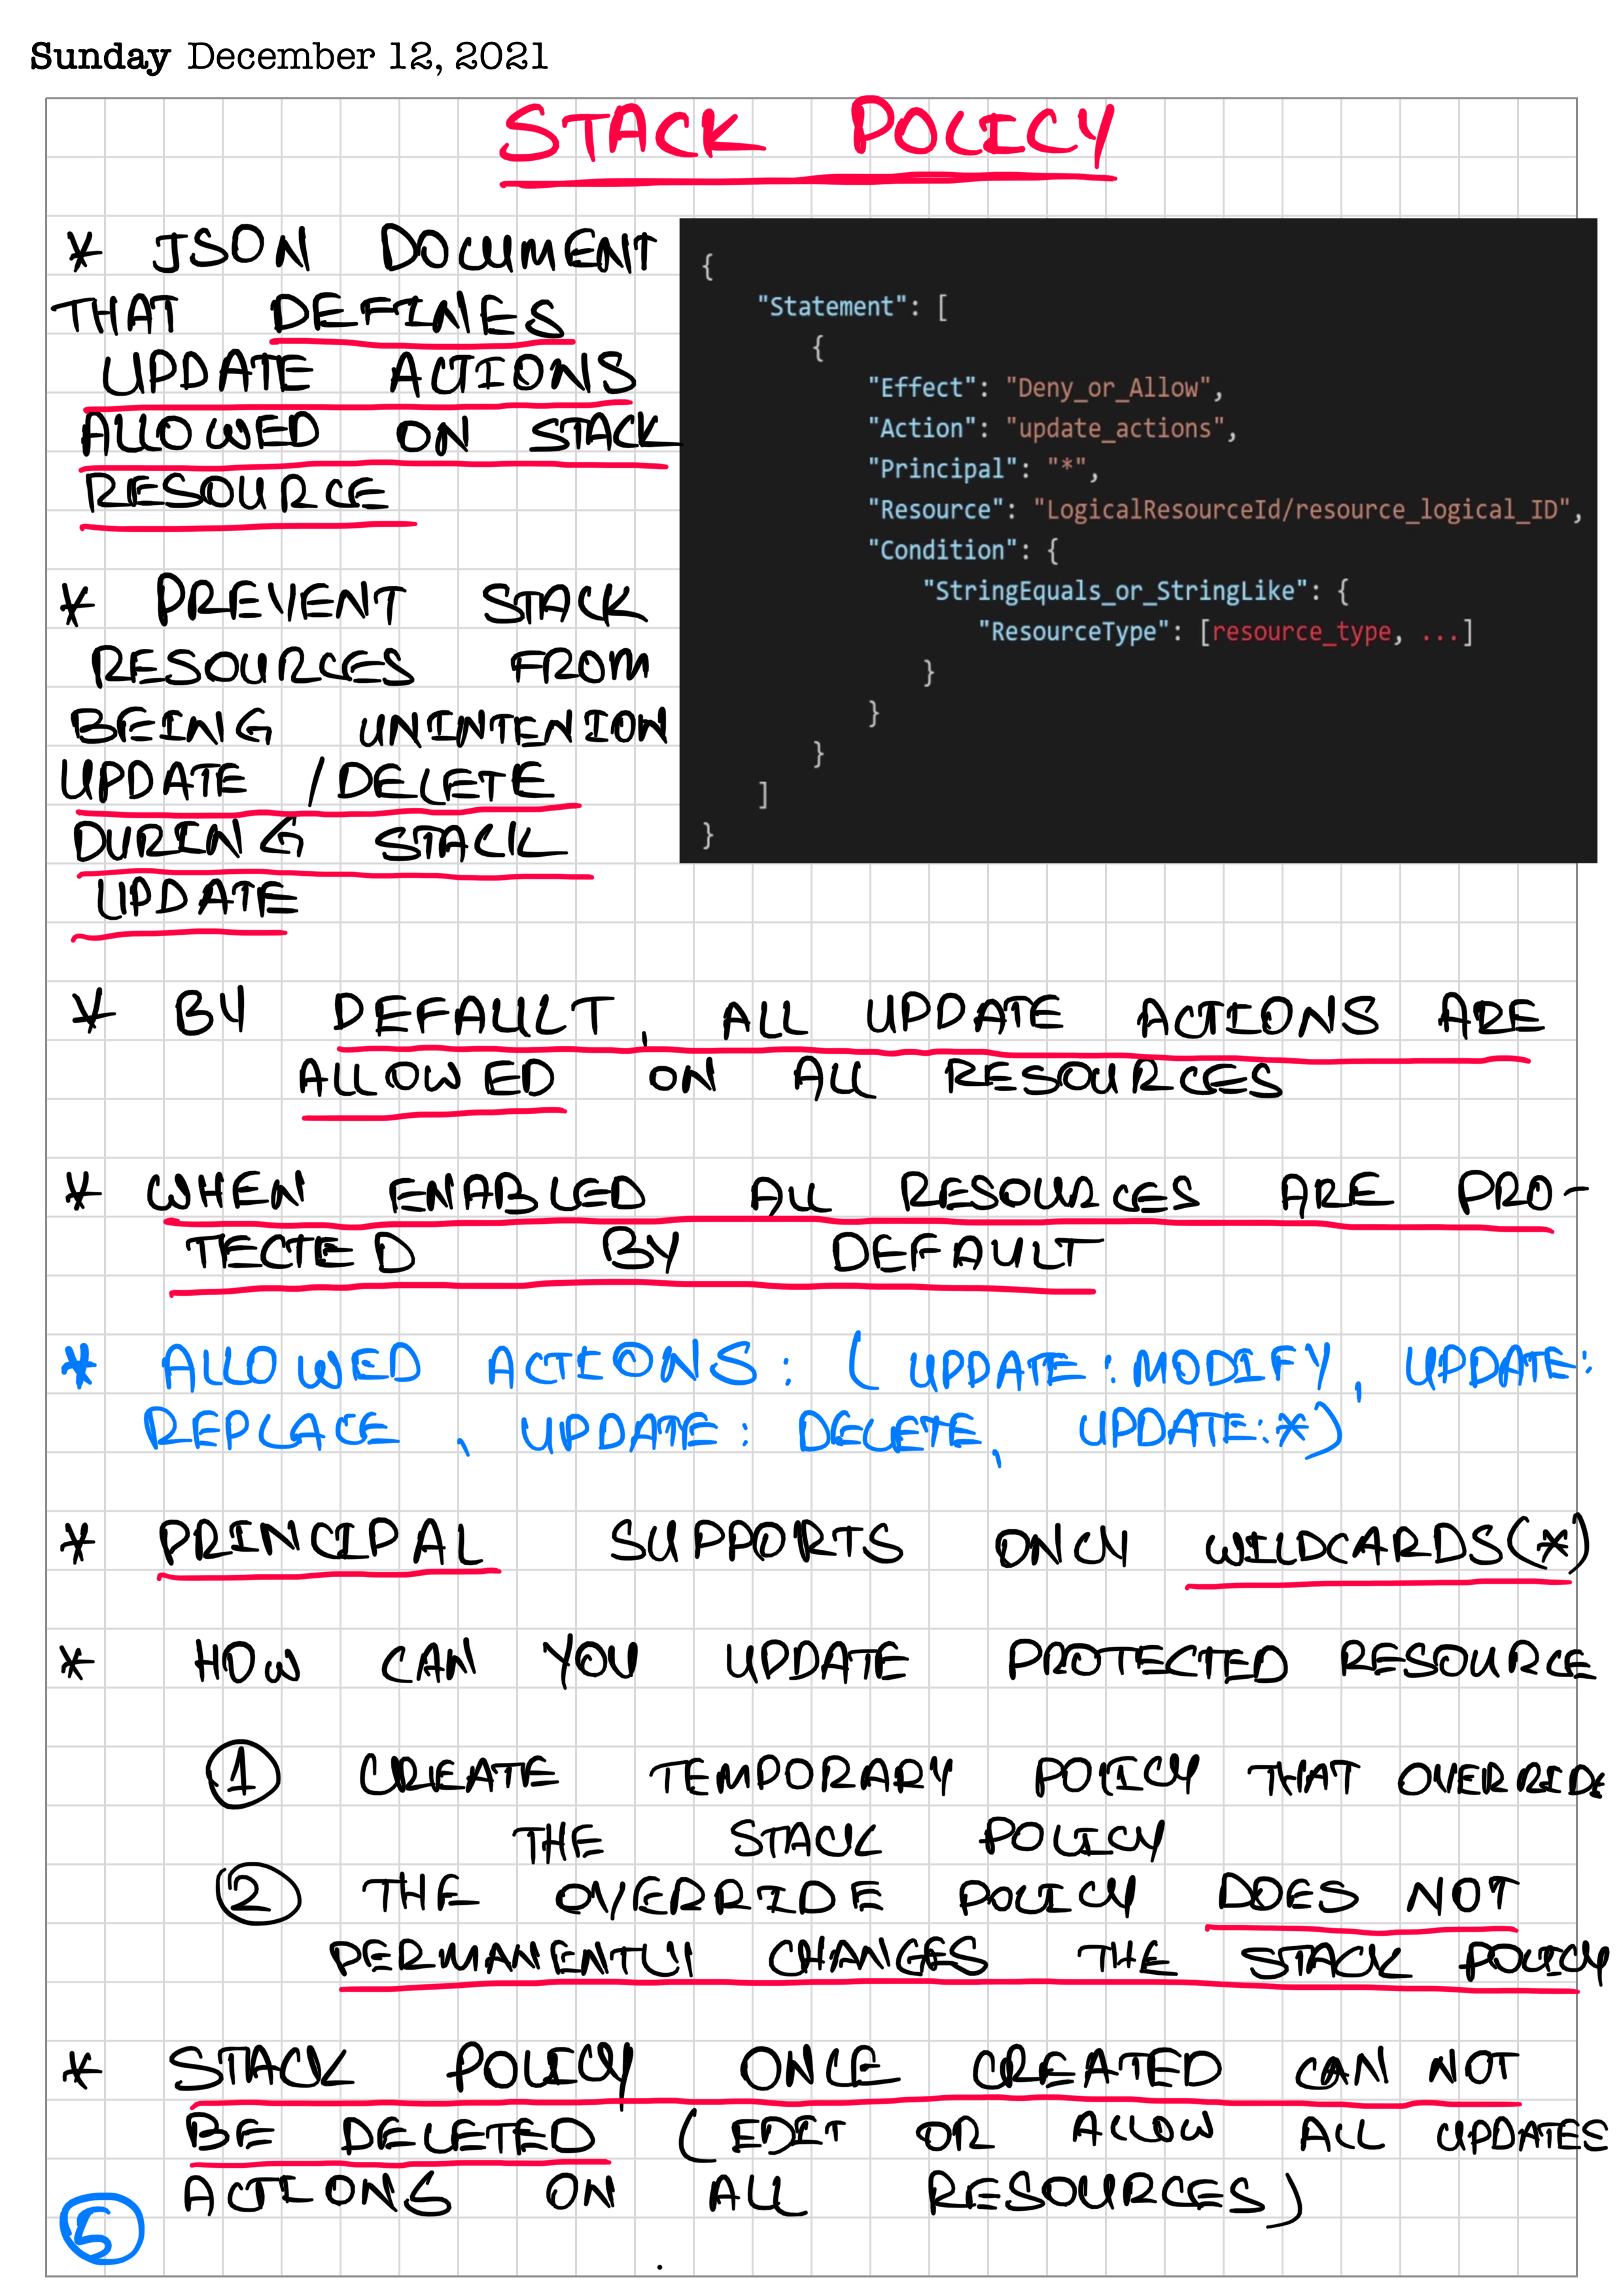 Sunday December 12, 2021
STACK POLICY
* JSON DOCUMENT
THAT DEFINES
UPDATE ACTIONS
ALLOWED ON STACK
RESOURCE
* PREVENT STACK
RESOURCES FROM
BEING UNINTENION
UPDATE /DELETE
DURING STACK
UPDATE
{
"Statement": [
{
"Effect": "Deny_or_Allow",
"Action": "update_actions",
"Principal": "*",
"Resource": "LogicalResourceId/resource_logical_ID",
"Condition": {
"StringEquals_or_StringLike": {
"ResourceType": [resource_type, ...]
}
}
}
]
}
* BY DEFAULT, ALL UPDATE ACTIONS ARE
ALLOWED ON ALL RESOURCES
* WHEN ENABLED ALL RESOURCES ARE PRO-
TECTED BY DEFAULT
* ALLOWED ACTIONS: (UPDATE:MODIFY, UPDATE:
REPLACE, UPDATE:DELETE, UPDATE:*)
* PRINCIPAL SUPPORTS ONLY WILDCARDS(*)
* HOW CAN YOU UPDATE PROTECTED RESOURCE
1 CREATE TEMPORARY POLICY THAT OVERRIDE
THE STACK POLICY
2 THE OVERRIDE POLICY DOES NOT
PERMANENTLY CHANGES THE STACK POLICY
* STACK POLICY ONCE CREATED CAN NOT
BE DELETED (EDIT OR ALLOW ALL UPDATES
ACTIONS ON ALL RESOURCES)
5